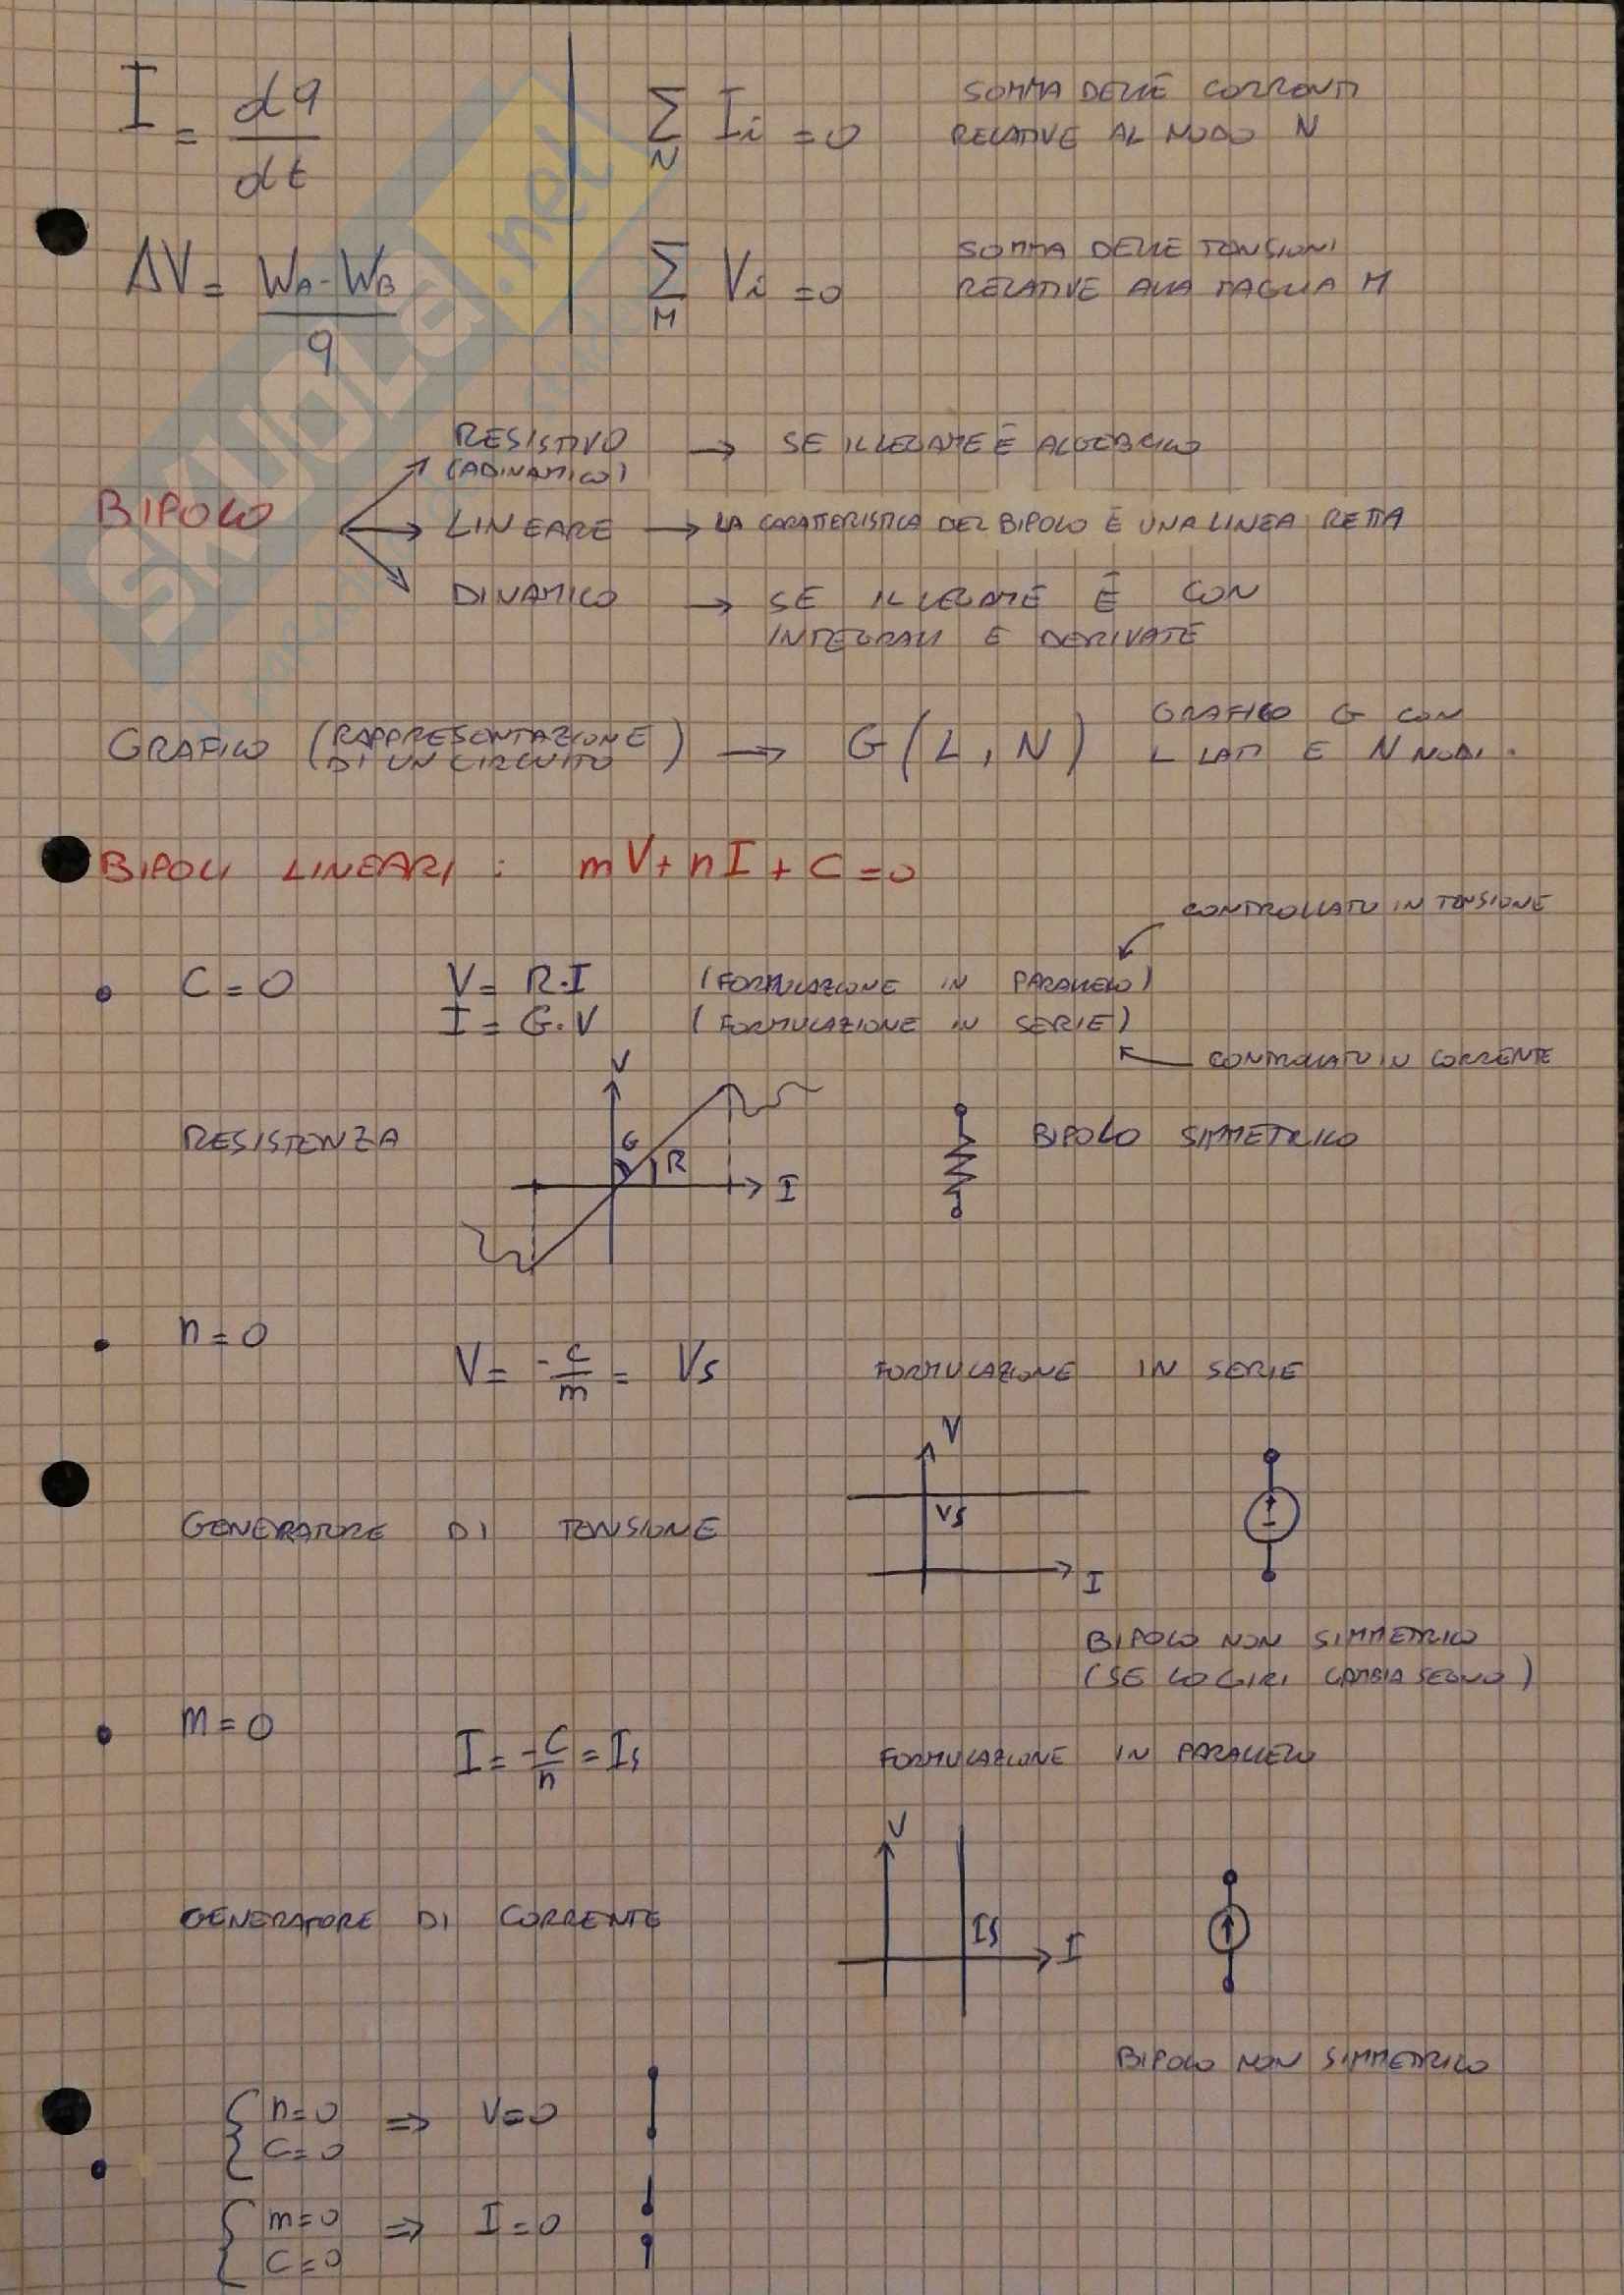 I = dq/dt
Σ_N Ii = 0 SOMMA DELLE CORRENTI
RELATIVE AL NODO N
ΔV = (WA - WB)/q
Σ_M Vi = 0 SOMMA DELLE TENSIONI
RELATIVE ALLA MAGLIA M
SKUOLA.net
BIPOLO
RESISTIVO → SE IL LEGAME È ALGEBRICO
(ADINAMICO)
LINEARE → LA CARATTERISTICA DEL BIPOLO È UNA LINEA RETTA
DINAMICO → SE IL LEGAME È CON
INTEGRALI E DERIVATE
GRAFICO (RAPPRESENTAZIONE DI UN CIRCUITO) → G(L, N) GRAFICO G CON
L LATI E N NODI.
BIPOLI LINEARI: mV + nI + C = 0
CONTROLLATO IN TENSIONE
• C = 0 V = R·I (FORMULAZIONE IN PARALLELO)
I = G·V (FORMULAZIONE IN SERIE)
CONTROLLATO IN CORRENTE
V
RESISTENZA G R I BIPOLO SIMMETRICO
• n = 0
V = -C/m = Vs FORMULAZIONE IN SERIE
V
Vs
GENERATORE DI TENSIONE
+
-
I
BIPOLO NON SIMMETRICO
(SE LO GIRI CAMBIA SEGNO)
• m = 0
I = -C/n = Is FORMULAZIONE IN PARALLELO
V
GENERATORE DI CORRENTE
Is I
BIPOLO NON SIMMETRICO
{ n=0 ⇒ V=0
C=0
•
{ m=0 ⇒ I=0
C=0